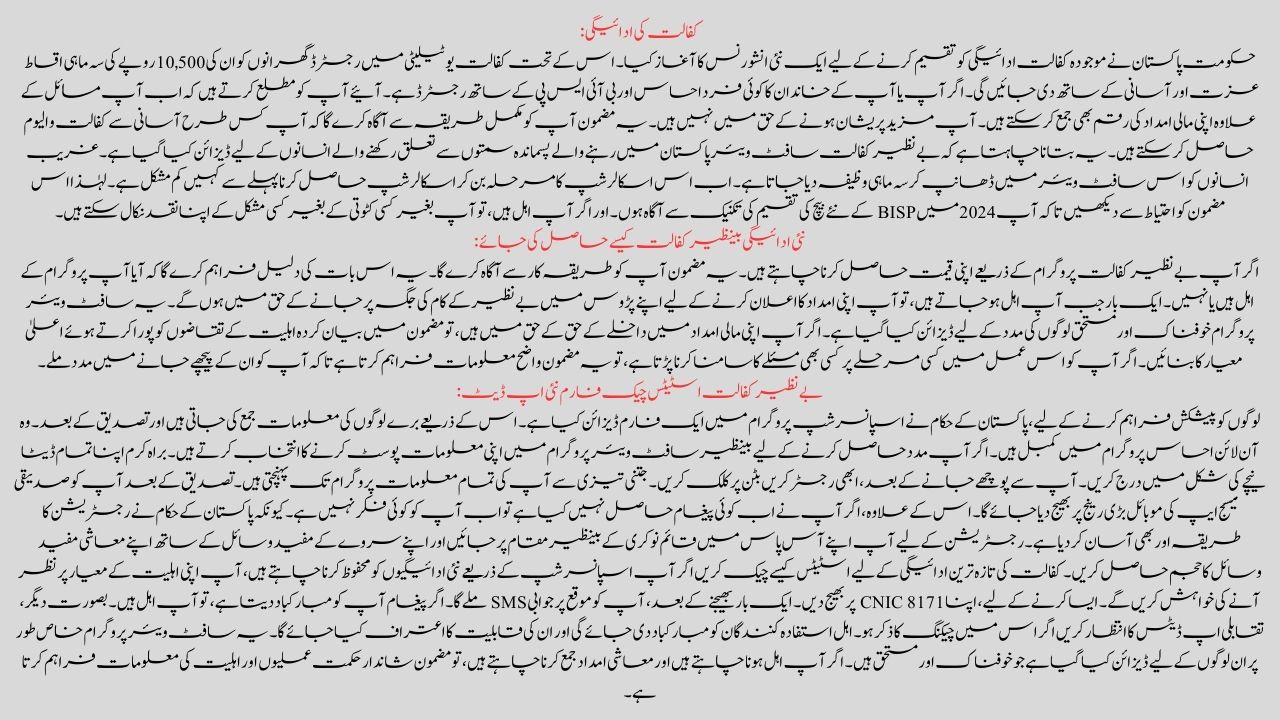 کفالت کی ادائیگی:
حکومت پاکستان نے موجودہ کفالت ادائیگی کو تقسیم کرنے کے لیے ایک نئی انشورنس کا آغاز کیا۔ اس کے تحت کفالت یوٹیلیٹی میں رجسٹرڈ گھرانوں کو ان کی 10,500 روپے کی سہ ماہی اقساط
عزت اور آسانی کے ساتھ دی جائیں گی۔ اگر آپ یا آپ کے خاندان کا کوئی فرد احساس اور بی آئی ایس پی کے ساتھ رجسٹرڈ ہے۔ آئیے آپ کو مطلع کرتے ہیں کہ اب آپ مسائل کے
علاوہ اپنی مالی امداد کی رقم بھی جمع کر سکتے ہیں۔ آپ مزید پریشان ہونے کے حق میں نہیں ہیں۔ یہ مضمون آپ کو مکمل طریقہ سے آگاہ کرے گا کہ آپ کس طرح آسانی سے کفالت والیوم
حاصل کر سکتے ہیں۔ یہ بتانا چاہتا ہے کہ بے نظیر کفالت سافٹ ویئر پاکستان میں رہنے والے پسماندہ سمتوں سے تعلق رکھنے والے انسانوں کے لیے ڈیزائن کیا گیا ہے۔ غریب
انسانوں کو اس سافٹ ویئر میں ڈھانپ کر سہ ماہی وظیفہ دیا جاتا ہے۔ اب اس اسکالرشپ کا مرحلہ بن کر اسکالرشپ حاصل کرنا پہلے سے کہیں کم مشکل ہے۔ لہٰذا اس
مضمون کو احتیاط سے دیکھیں تاکہ آپ 2024 میں BISP کے نئے بیچ کی تقسیم کی تکنیک سے آگاہ ہوں۔ اور اگر آپ اہل ہیں، تو آپ بغیر کسی کٹوتی کے بغیر کسی مشکل کے اپنا نقد نکال سکتے ہیں۔
نئی ادائیگی بینظیر کفالت کیسے حاصل کی جائے:
اگر آپ بے نظیر کفالت پروگرام کے ذریعے اپنی قیمت حاصل کرنا چاہتے ہیں۔ یہ مضمون آپ کو طریقہ کار سے آگاہ کرے گا۔ یہ اس بات کی دلیل فراہم کرے گا کہ آیا آپ پروگرام کے
اہل ہیں یا نہیں۔ ایک بار جب آپ اہل ہو جاتے ہیں، تو آپ اپنی امداد کا اعلان کرنے کے لیے اپنے پڑوس میں بے نظیر کے کام کی جگہ پر جانے کے حق میں ہوں گے۔ یہ سافٹ ویئر
پروگرام خوفناک اور مستحق لوگوں کی مدد کے لیے ڈیزائن کیا گیا ہے۔ اگر آپ اپنی مالی امداد میں داخلے کے حق کے حق میں ہیں، تو مضمون میں بیان کردہ اہلیت کے تقاضوں کو پورا کرتے ہوئے اعلیٰ
معیار کا بنائیں۔ اگر آپ کو اس عمل میں کسی مرحلے پر کسی بھی مسئلے کا سامنا کرنا پڑتا ہے، تو یہ مضمون واضح معلومات فراہم کرتا ہے تاکہ آپ کو ان کے پیچھے جانے میں مدد ملے۔
بے نظیر کفالت اسٹیٹس چیک فارم نئی اپ ڈیٹ:
لوگوں کو پیشکش فراہم کرنے کے لیے، پاکستان کے حکام نے اسپانسرشپ پروگرام میں ایک فارم ڈیزائن کیا ہے۔ اس کے ذریعے برے لوگوں کی معلومات جمع کی جاتی ہیں اور تصدیق کے بعد۔ وہ
آن لائن احساس پروگرام میں کمبل ہیں۔ اگر آپ مدد حاصل کرنے کے لیے بینظیر سافٹ ویئر پروگرام میں اپنی معلومات پوسٹ کرنے کا انتخاب کرتے ہیں۔ براہ کرم اپنا تمام ڈیٹا
نیچے کی شکل میں درج کریں۔ آپ سے پوچھے جانے کے بعد، ابھی رجسٹر کریں بٹن پر کلک کریں۔ جتنی تیزی سے آپ کی تمام معلومات پروگرام تک پہنچتی ہیں۔ تصدیق کے بعد آپ کو صدیقی
میسج ایپ کی موبائل بڑی رینج پر بھیج دیا جائے گا۔ اس کے علاوہ، اگر آپ نے اب کوئی پیغام حاصل نہیں کیا ہے تو اب آپ کو کوئی فکر نہیں ہے۔ کیونکہ پاکستان کے حکام نے رجسٹریشن کا
طریقہ اور بھی آسان کر دیا ہے۔ رجسٹریشن کے لیے آپ اپنے آس پاس میں قائم نوکری کے بینظیر مقام پر جائیں اور اپنے سروے کے مفید وسائل کے ساتھ اپنے معاشی مفید
وسائل کا حجم حاصل کریں۔ کفالت کی تازہ ترین ادائیگی کے لیے اسٹیٹس کیسے چیک کریں اگر آپ اسپانسرشپ کے ذریعے نئی ادائیگیوں کو محفوظ کرنا چاہتے ہیں، آپ اپنی اہلیت کے معیار پر نظر
آنے کی خواہش کریں گے۔ ایسا کرنے کے لیے، اپنا CNIC 8171 پر بھیج دیں۔ ایک بار بھیجنے کے بعد، آپ کو موقع پر جوابی SMS ملے گا۔ اگر پیغام آپ کو مبارکباد دیتا ہے، تو آپ اہل ہیں۔ بصورت دیگر،
تقابلی اپ ڈیٹس کا انتظار کریں اگر اس میں چیکنگ کا ذکر ہو۔ اہل استفادہ کنندگان کو مبارکباد دی جائے گی اور ان کی قابلیت کا اعتراف کیا جائے گا۔ یہ سافٹ ویئر پروگرام خاص طور
پر ان لوگوں کے لیے ڈیزائن کیا گیا ہے جو خوفناک اور مستحق ہیں۔ اگر آپ اہل ہونا چاہتے ہیں اور معاشی امداد جمع کرنا چاہتے ہیں، تو مضمون شاندار حکمت عملیوں اور اہلیت کی معلومات فراہم کرتا
ہے۔